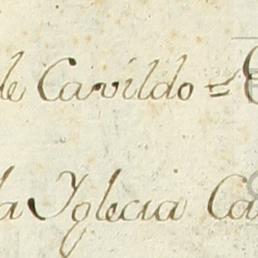 de Cavildo =
la Yglecia Ca